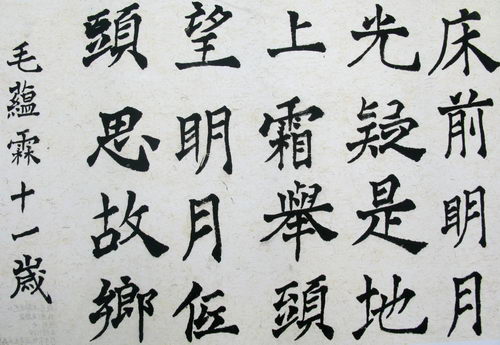 床前明月
光疑是地
上霜舉頭
望明月低
頭思故鄉
毛蘊霖十一歲